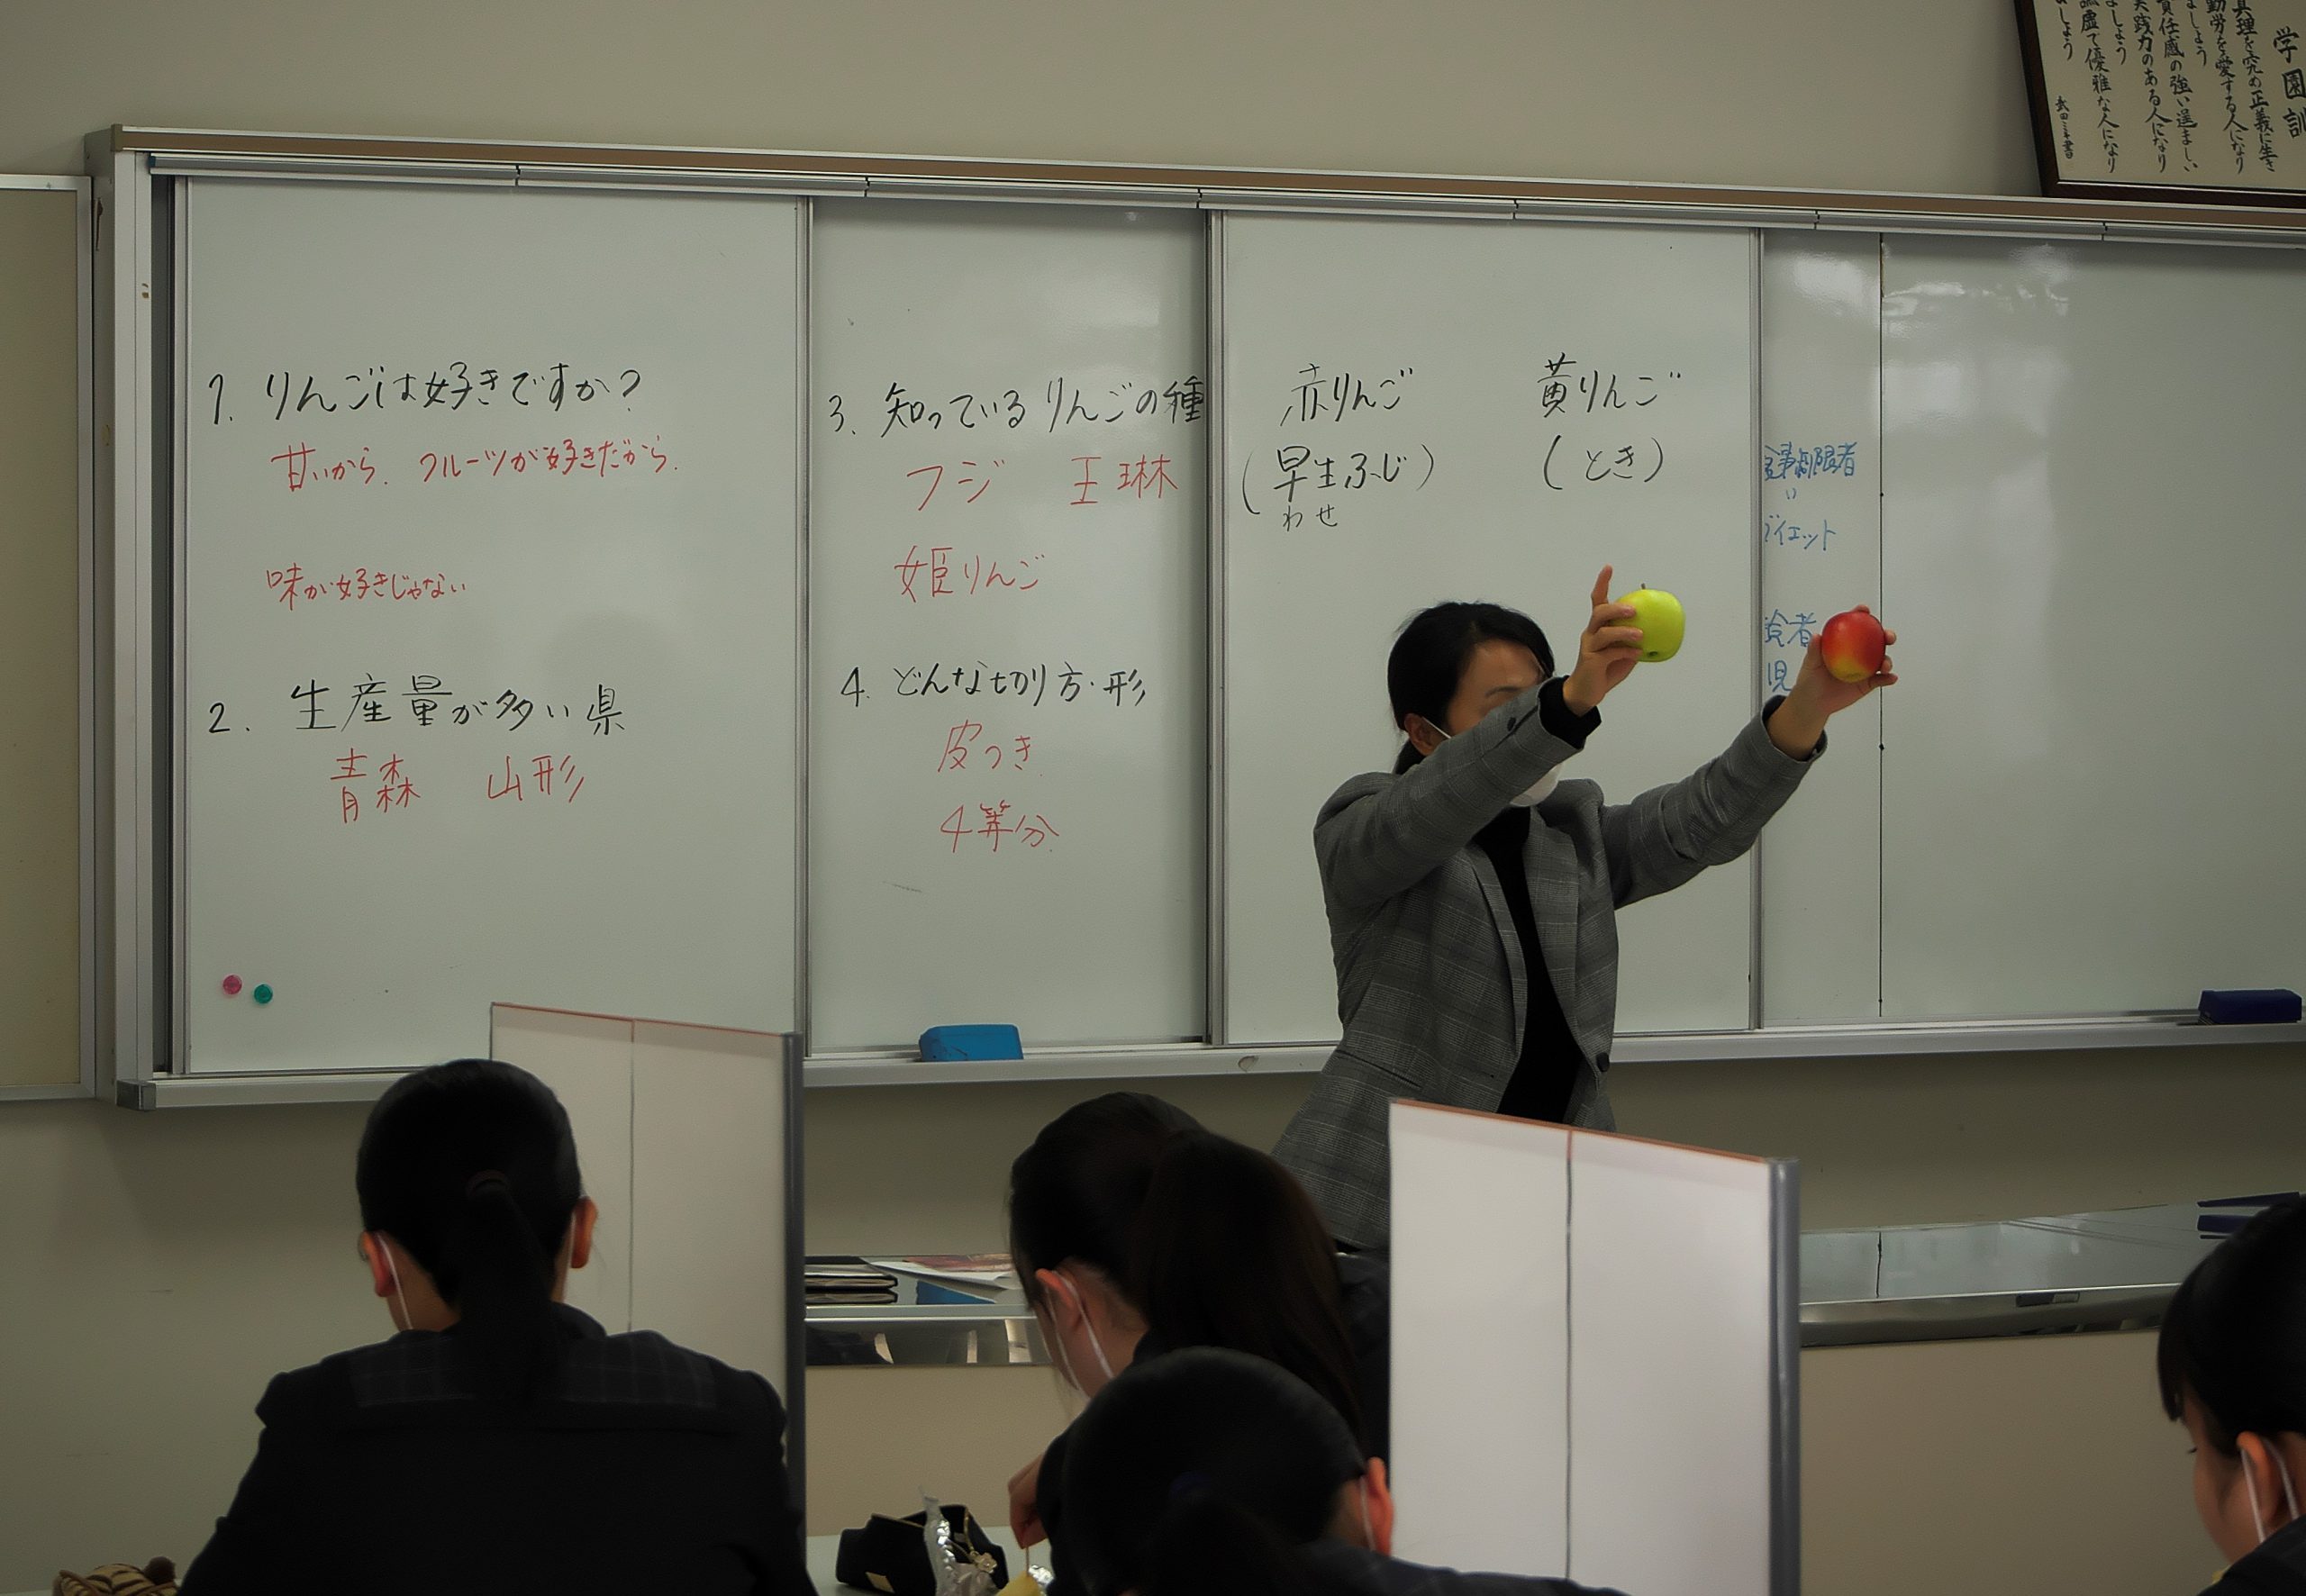 1. りんごは好きですか?
甘いから. フルーツが好きだから.
味が好きじゃない
2. 生産量が多い県
青森 山形
3. 知っているりんごの種
フジ 王琳
姫りんご
4. どんな切り方・形
皮つき
4等分
赤りんご
(早生ふじ)
わせ
黄りんご
(とき)
食事制限者
ダイエット
者
児
学園訓
真理を究め正義に生き
勤労を愛する人になり
ましょう
責任感の強い逞ましい
実践力のある人になり
ましょう
謙虚で優雅な人になり
ましょう